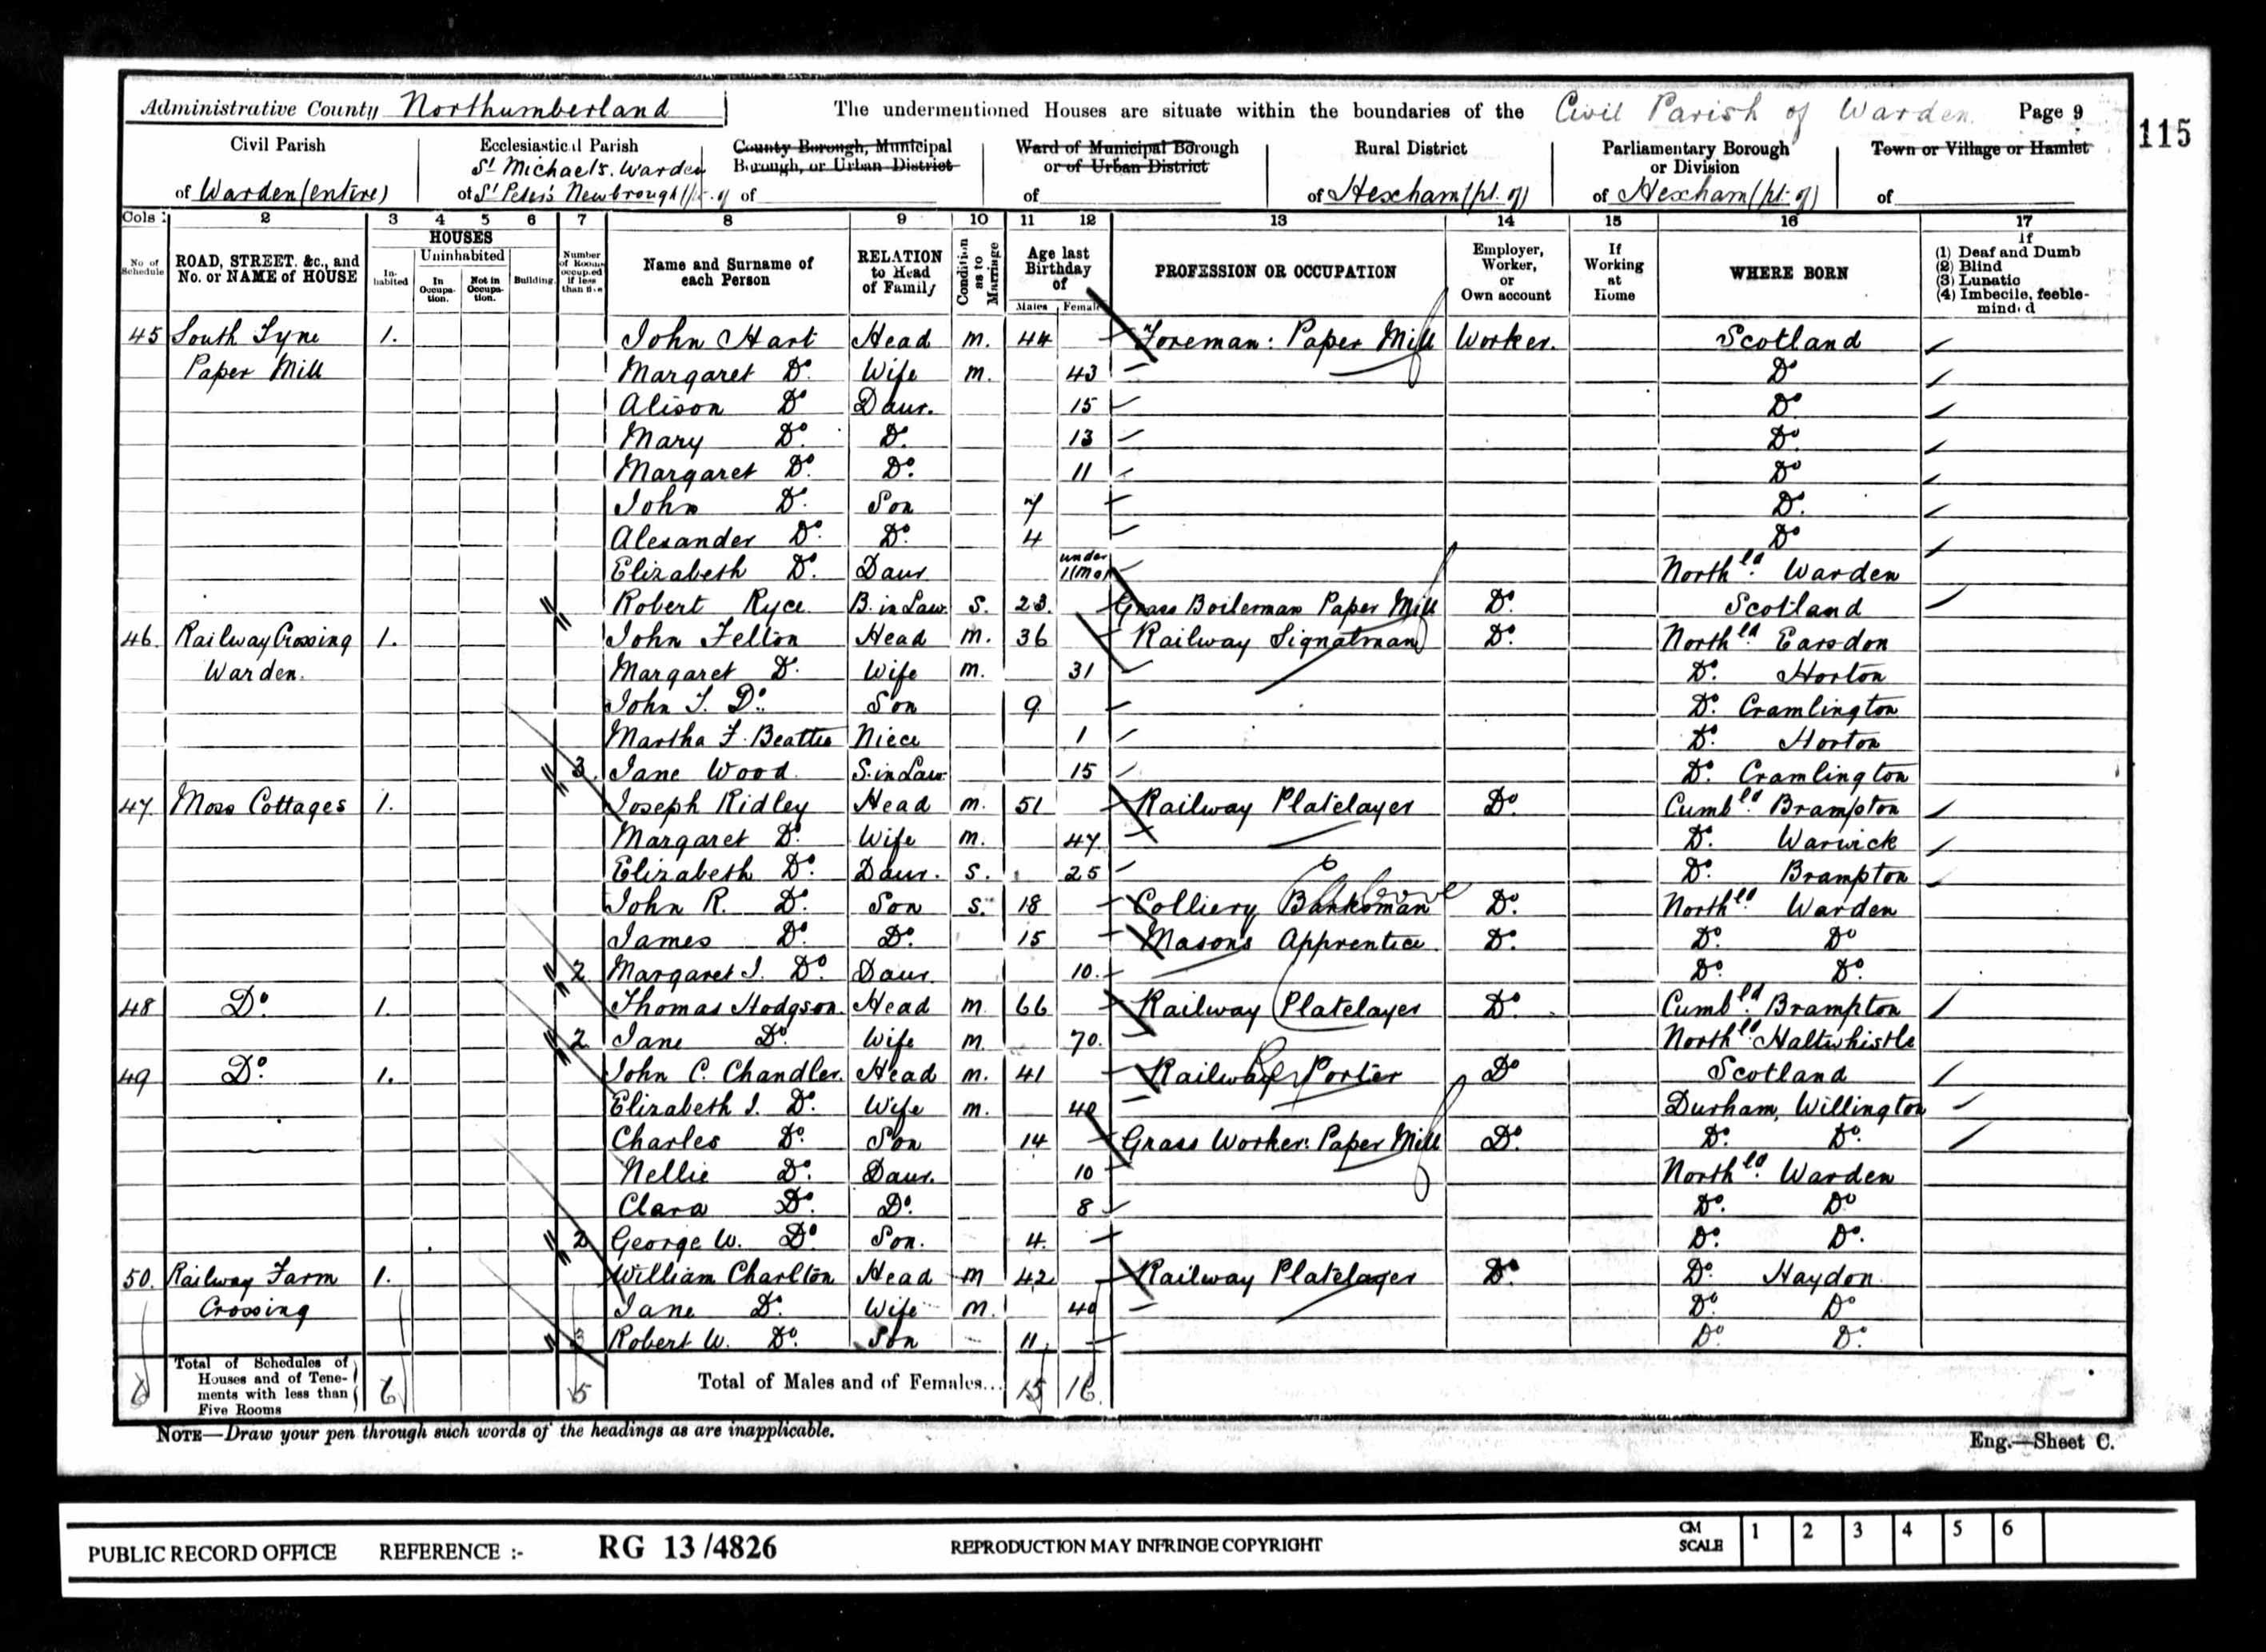 Administrative County Northumberland The undermentioned Houses are situate within the boundaries of the Civil Parish of Warden Page 9
115
Civil Parish Ecclesiastical Parish County Borough, Municipal Ward of Municipal Borough Rural District Parliamentary Borough Town or Village or Hamlet
St. Michael's. Warden Borough, or Urban District or of Urban District or Division
of Warden (entire) of St. Peter's Newbrough (pt. of of of of Hexham (pt. of) of Hexham (pt. of) of
Cols: 2 3 4 5 6 7 8 9 10 11 12 13 14 15 16 17
No of Schedule
ROAD, STREET, &c., and No. or NAME of HOUSE
HOUSES
In-habited
Uninhabited
In Occupa-tion.
Not in Occupa-tion.
Building
Number of Rooms occupied if less than five
Name and Surname of each Person
RELATION to Head of Family
Condition as to Marriage
Age last Birthday of
Males Females
PROFESSION OR OCCUPATION
Employer, Worker, or Own account
If Working at Home
WHERE BORN
If
(1) Deaf and Dumb
(2) Blind
(3) Lunatic
(4) Imbecile, feeble-minded
45 South Tyne 1. John Hart Head m. 44 Foreman: Paper Mill Worker. Scotland
Paper Mill Margaret Do. Wife m. 43 Do
Alison Do Daur. 15 Do.
Mary Do. Do. 13 Do.
Margaret Do. Do. 11 Do
John Do. Son 7 Do.
Alexander Do. Do. 4 Do
Elizabeth Do. Daur under 11mo North ld. Warden
Robert Ryce. B. in Law. S. 23. Grass Boilerman Paper Mill Do. Scotland
46. Railway Crossing 1. John Felton Head m. 36 Railway Signalman Do. North ld. Earsdon
Warden. Margaret Do. Wife m. 31 Do. Horton
John T. Do. Son 9 Do. Cramlington
Martha F. Beattie Niece 1 Do. Horton
3. Jane Wood. S. in Law. 15 Do. Cramlington
47. Moss Cottages 1. Joseph Ridley Head m. 51 Railway Platelayer Do Cumb ld. Brampton
Margaret Do. Wife m. 47 Do. Warwick
Elizabeth Do. Daur. S. 25 Do. Brampton
John R. Do. Son S. 18 Colliery Banksman Do. North ld. Warden
James Do. Do. 15 Mason's Apprentice. Do. Do. Do
2 Margaret J. Do. Daur. 10. Do. Do.
48 Do. 1. Thomas Hodgson. Head m. 66 Railway Platelayer Do. Cumb ld. Brampton
2 Jane Do. Wife m. 70. North ld. Haltwhistle
49 Do. 1. John C. Chandler. Head m. 41 Railway Porter Do Scotland
Elizabeth J. Do. Wife m. 40 Durham, Willington
Charles Do. Son 14 Grass Worker: Paper Mill Do. Do. Do.
Nellie Do. Daur. 10 North ld. Warden
Clara Do. Do. 8 Do. Do
2 George W. Do. Son. 4. Do. Do.
50. Railway Farm 1. William Charlton Head m 42 Railway Platelayer Do. Do. Haydon
Crossing Jane Do. Wife m. 40 Do. Do
3 Robert W. Do. Son 11. Do. Do.
6 Total of Schedules of Houses and of Tenements with less than Five Rooms 6 5 Total of Males and of Females... 15 16
NOTE—Draw your pen through such words of the headings as are inapplicable.
Eng.—Sheet C.
PUBLIC RECORD OFFICE REFERENCE :- RG 13/4826 REPRODUCTION MAY INFRINGE COPYRIGHT CM SCALE 1 2 3 4 5 6